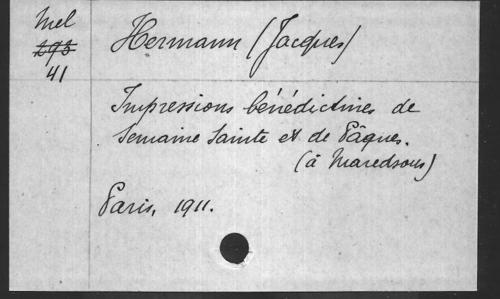 Mel
293
41
Hermann (Jacques)
Impressions bénédictines de
Semaine Sainte et de Pâques.
(à Maredsous)
Paris, 1911.